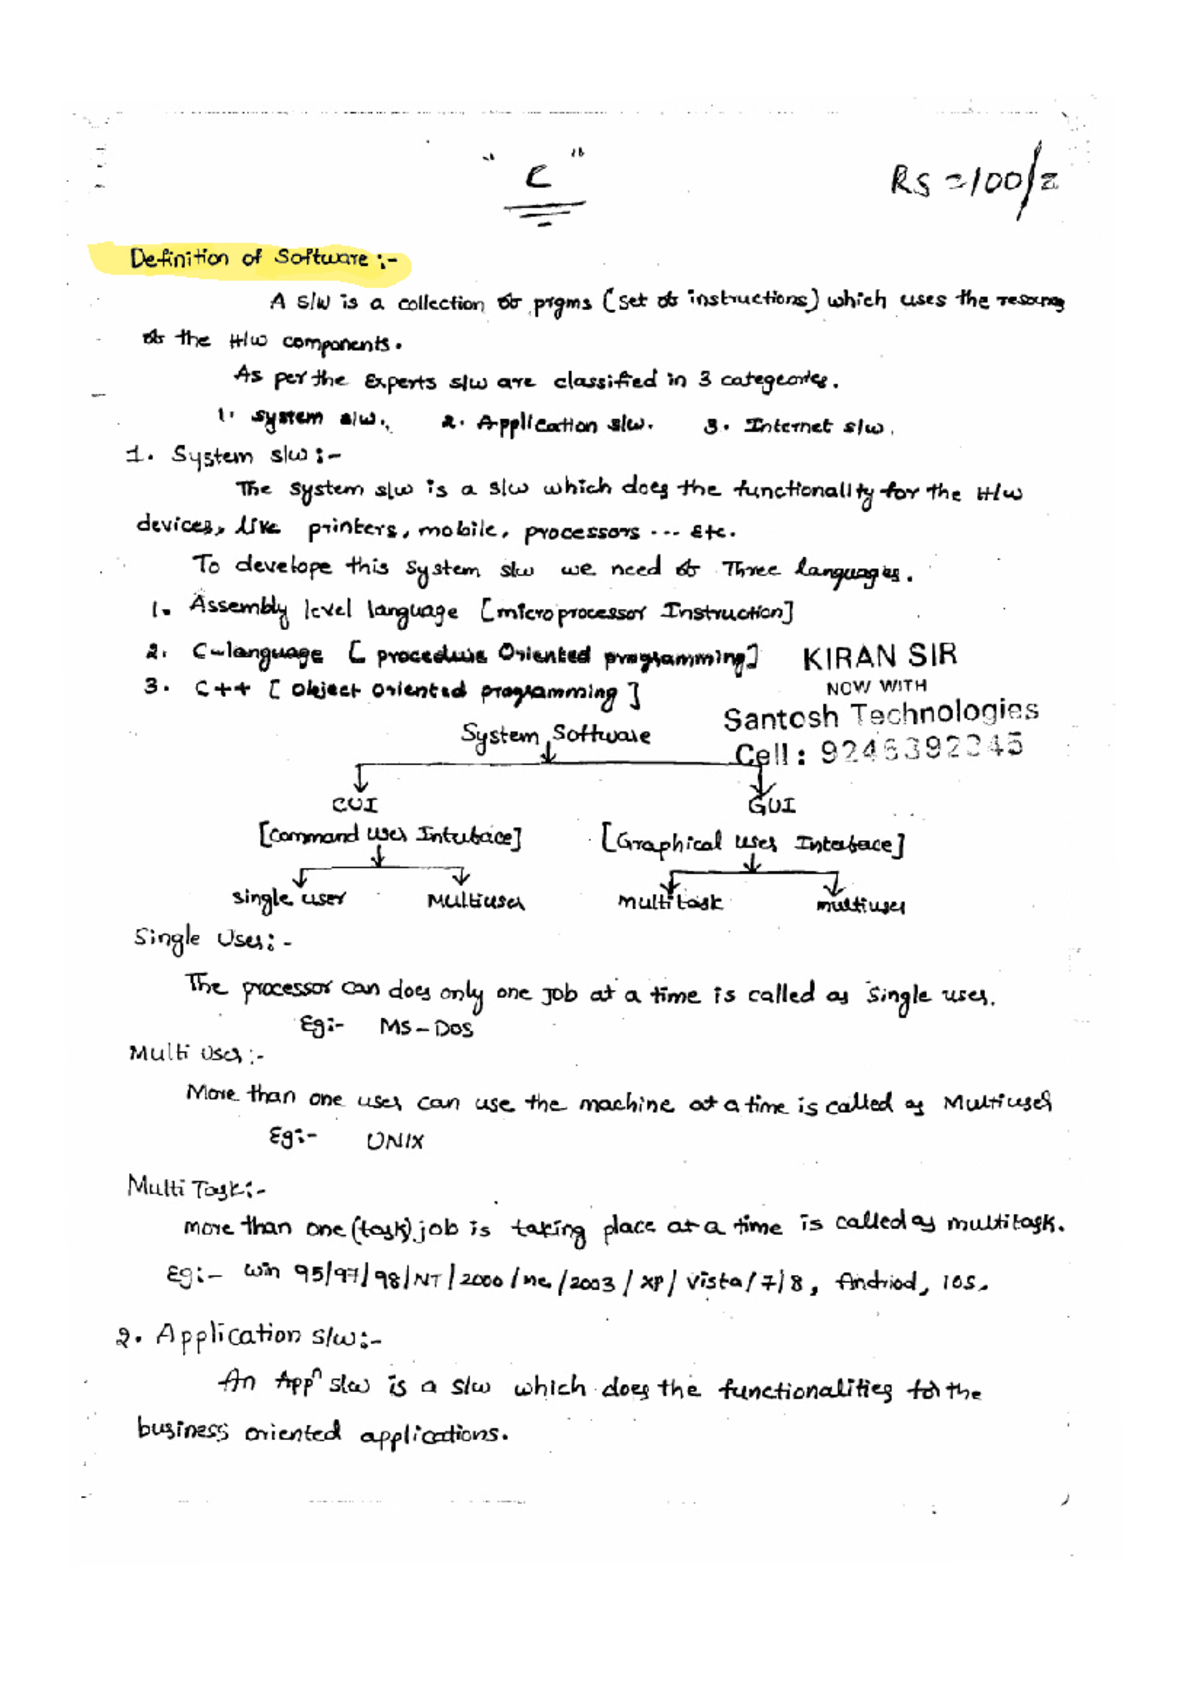 "C"
RS =100/=
Definition of Software :-
A S/W is a collection of prgms (set of instructions) which uses the resources
of the H/W components.
As per the Experts s/w are classified in 3 categeories.
1. System s/w. 2. Application s/w. 3. Internet s/w.
1. System s/w :-
The System s/w is a s/w which does the functionality for the H/w
devices, like printers, mobile, processors ... Etc.
To develope this System s/w we need of Three languages.
1. Assembly level language [microprocessor Instruction]
2. C-language [ procedure Oriented programming]
KIRAN SIR
NOW WITH
3. C++ [ Object Oriented programming ]
Santosh Technologies
System Software
Cell : 9246392345
CUI GUI
[Command user Interface] [Graphical user Interface]
single user Multiuser multitask multiuser
Single User :-
The processor can does only one job at a time is called as Single user.
Eg:- MS-DOS
Multi User :-
More than one user can use the machine at a time is called as Multiuser
Eg:- UNIX
Multi Task :-
more than one (task) job is taking place at a time is called as multitask.
Eg:- Win 95/97/98/NT/2000/me/2003/XP/Vista/7/8, Andriod, ios.
2. Application s/w :-
An Appⁿ s/w is a s/w which does the functionalities for the
business oriented applications.